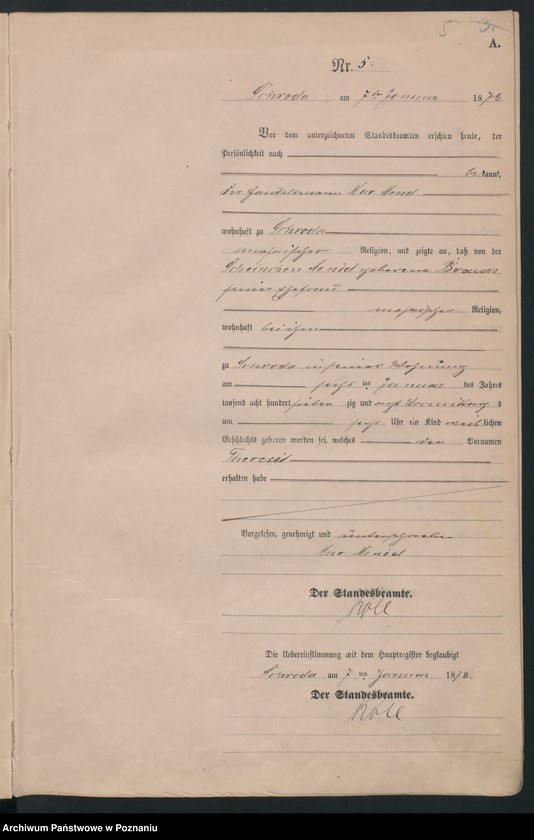 5
A.
Nr. 5.
Schroda, am 7ten Januar 1878.
Vor dem unterzeichneten Standesbeamten erschien heute, der
Persönlichkeit nach
be kannt,
der Handelsmann
wohnhaft zu Schroda
mosaischer Religion, und zeigte an, daß von der
geborene Braun
seiner Ehefrau
mosaischer Religion,
wohnhaft bei ihm
zu Schroda in seiner Wohnung
am sechs ten Januar des Jahres
tausend acht hundert sieben zig und acht Vormittag s
um sechs Uhr ein Kind weib lichen
Geschlechts geboren worden sei, welches den Vornamen
erhalten habe
Vorgelesen, genehmigt und unterschrieben
Der Standesbeamte.
Die Uebereinstimmung mit dem Hauptregister beglaubigt
Schroda am 7 ten Januar 1878.
Der Standesbeamte.
Archiwum Państwowe w Poznaniu